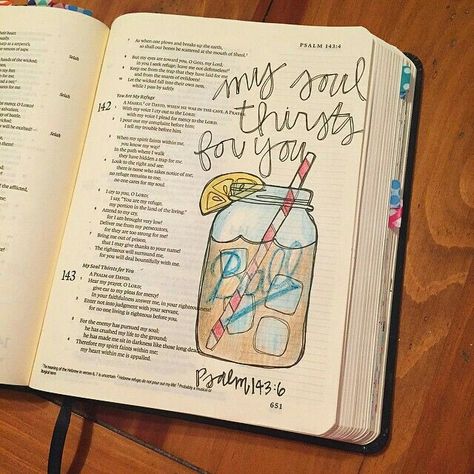 PSALM 143:4
7 As when one plows and breaks up the earth,
so shall our bones be scattered at the mouth of Sheol.
8 But my eyes are toward you, O GOD, my Lord;
in you I seek refuge; leave me not defenseless!
9 Keep me from the trap that they have laid for me
and from the snares of evildoers!
10 Let the wicked fall into their own nets,
while I pass by safely.
You Are My Refuge
142 A MASKIL OF DAVID, WHEN HE WAS IN THE CAVE. A PRAYER.
With my voice I cry out to the LORD;
with my voice I plead for mercy to the LORD.
2 I pour out my complaint before him;
I tell my trouble before him.
3 When my spirit faints within me,
you know my way!
In the path where I walk
they have hidden a trap for me.
4 Look to the right and see:
there is none who takes notice of me;
no refuge remains to me;
no one cares for my soul.
5 I cry to you, O LORD;
I say, "You are my refuge,
my portion in the land of the living."
6 Attend to my cry,
for I am brought very low!
Deliver me from my persecutors,
for they are too strong for me!
7 Bring me out of prison,
that I may give thanks to your name!
The righteous will surround me,
for you will deal bountifully with me.
My Soul Thirsts for You
143 A PSALM OF DAVID.
Hear my prayer, O LORD;
give ear to my pleas for mercy!
in your faithfulness answer me, in your righteousness!
2 Enter not into judgment with your servant,
for no one living is righteous before you.
3 For the enemy has pursued my soul;
he has crushed my life to the ground;
he has made me sit in darkness like those long dead
4 Therefore my spirit faints within me;
my heart within me is appalled.
my soul
thirsts
for you
Ball
Psalm 143:6
651
Selah
Selah
Selah